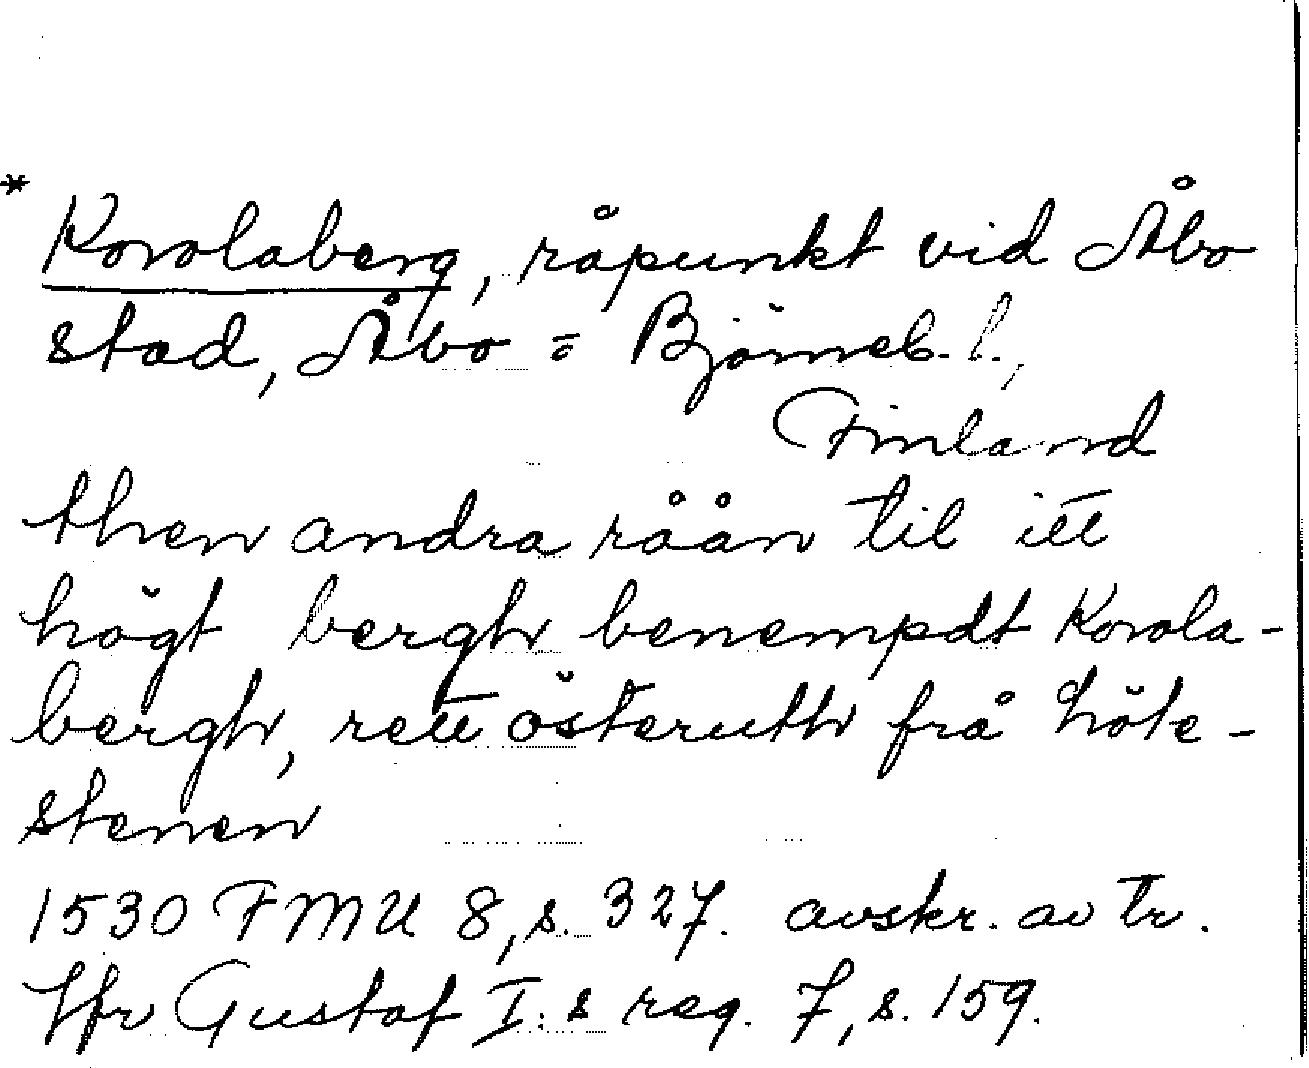 * Korolaberg, råpunkt vid Åbo
stad, Åbo- o Björneb. l.,
Finland
then andra råån til itt
högt bergh benempdt Korola-
bergh, rett österuth frå höte-
stenen
1530 FMU 8, s. 327. avskr. av tr.
Jfr Gustaf I:s reg. 7, s. 159.